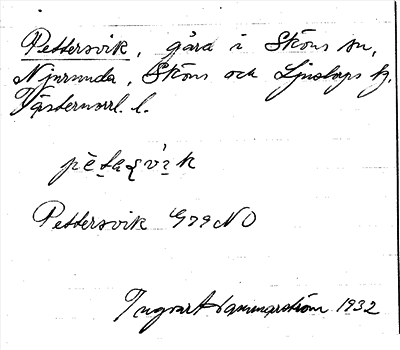 Pettersvik, gård i Sköns sn,
Njurunda, Sköns och Ljustorps tg.
Västernorrl. l.
Pettersvik G79 NO
Ingvar Hammarström 1932